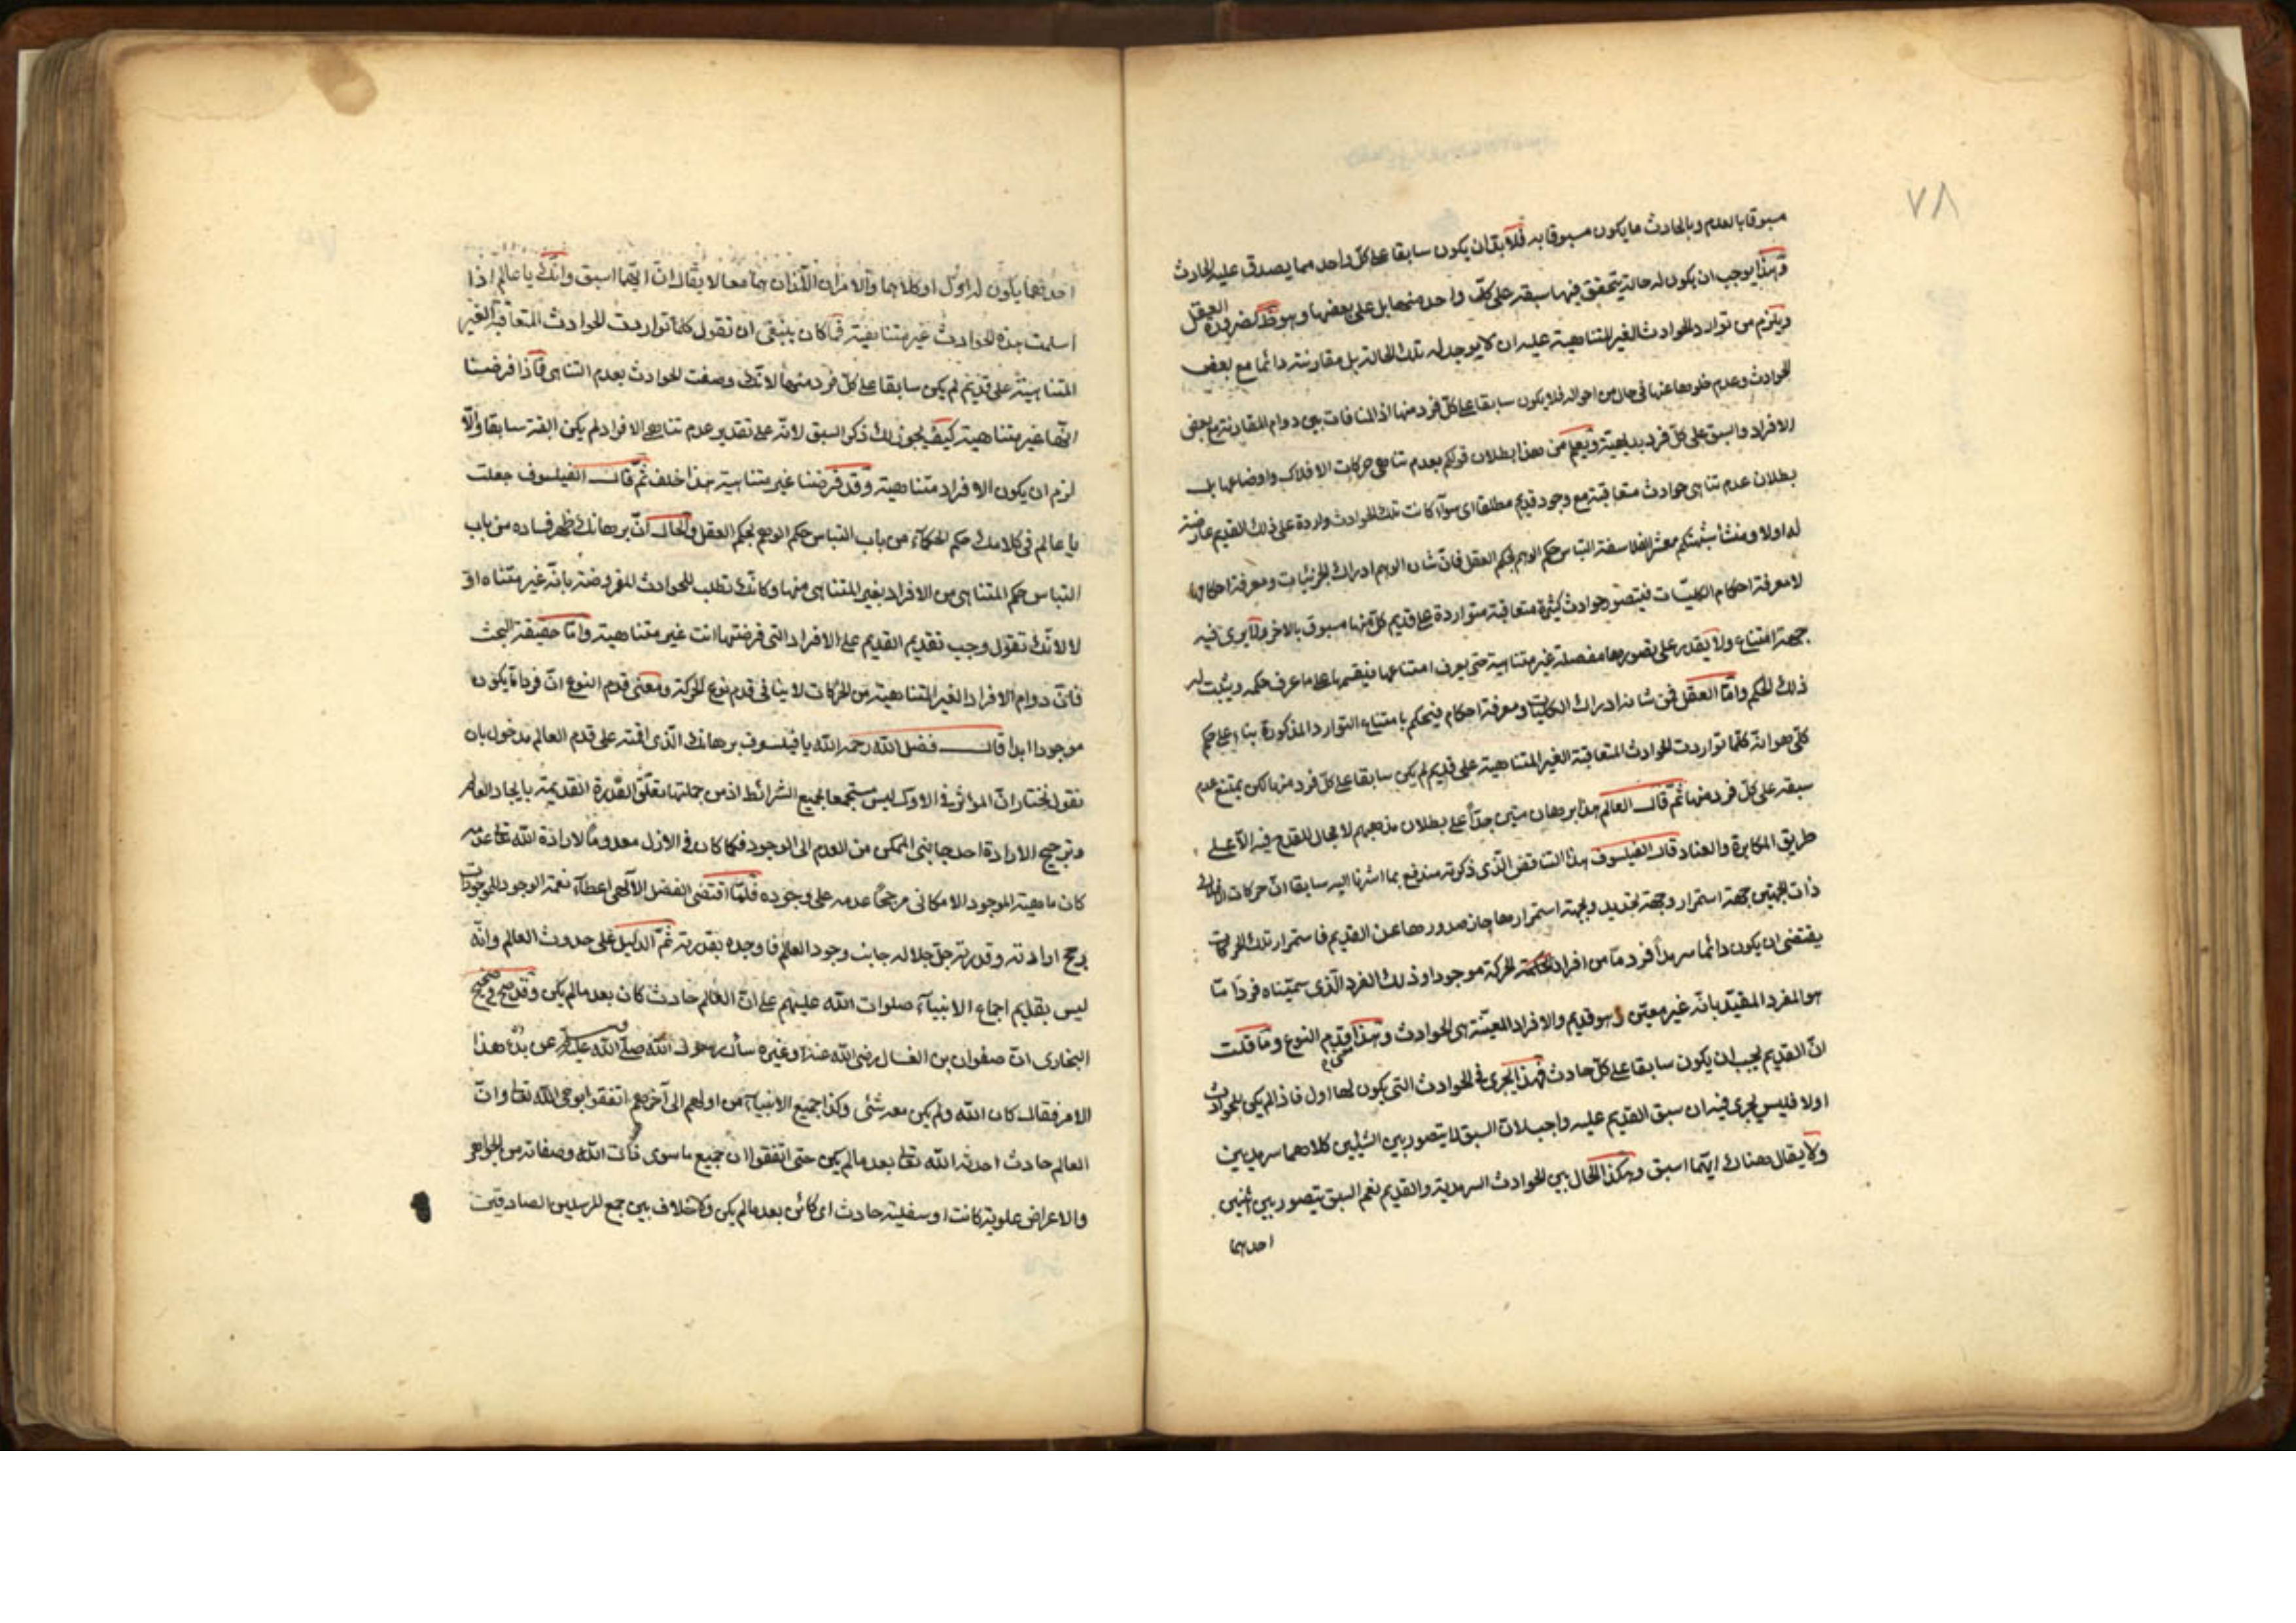 ٧٨
مسبوقا بالعدم وبالحادث ما يكون مسبوقا به فلا بد ان يكون سابقا على كل واحد مما يصدق عليه الحادث
وهذا يوجب ان يكون له حالة يتحقق فيها سبقه على كل واحد منها بل على بعضها وهو ظ لضرورة العقل
ويلزم من توارد الحوادث الغير المتناهية عليه ان لا يوجد له تلك الحالة بل مقارنته دائما مع بعض
الحوادث وعدم خلوها عنها في حال من احواله فلا يكون سابقا على كل فرد منها اذ المنافات بين دوام المقارنة مع بعض
الافراد والسبق على كل فرد بديهية ويعلم من هذا بطلان قولكم بعدم تناهي حركات الافلاك واوضاعها بل
بطلان عدم تناهى حوادث متعاقبة مع وجود قديم مطلقا اى سواء كانت تلك الحوادث واردة على ذلك القديم عارضة
له اولا ومنشأ شبهتكم معشر الفلاسفة التباس حكم الوهم بحكم العقل فان شان الوهم ادراك الجزئيات ومعرفة احكامها
لا معرفة احكام الكليات فيتصور حوادث كثيرة متعاقبة متواردة على قديم كل منها مسبوق بالاخر ولا يرى فيه
جهة امتناع ولا يقدر على تصورها مفصلة غير متناهية حتى يعرف امتناعها فيقسها على ما عرف حكمه ويثبت له
ذلك الحكم واما العقل فمن شانه ادراك الكليات ومعرفة احكام فيحكم بامتناع التوارد المذكورة بناء على حكم
كلي هو انه كلما تواردت الحوادث المتعاقبة الغير المتناهية على قديم لم يكن سابقا على كل فرد منها لكن يمتنع عدم
سبقه على كل فرد منها ثم قال العالم هذا برهان متين جدا على بطلان مذهبهم لا مجال للقدح فيه الا على
طريق المكابرة والعناد قال الفيلسوف هذا التناقض الذى ذكرته مندفع بما اشرنا اليه سابقا ان حركات الافلاك
ذات الجهتين جهة استمرار وجهة تجديد وبجهة استمرارها جاز صدورها عن القديم فاستمرار تلك الحركات
يقتضى ان يكون دائما سرمدا فرد ما من افراد الحركة موجودا وذلك الفرد الذى سميناه فردا ما
هو المفرد المقيد بانه غير معين وهو قديم والافراد المعينة هى الحوادث وهذا معنى قدم النوع وما قلت
ان القديم يجب ان يكون سابقا على كل حادث فهذا يجرى في الحوادث التى يكون لها اول فاذا لم يكن للحوادث
اولا فليس يجرى فيه ان سبق القديم عليه واجب لان السبق لا يتصور بين الشيئين كلاهما سرمديين
ولا يقال هناك ايهما اسبق وهكذا الحال بين الحوادث السرمدية والقديم نعم السبق يتصور بين شيئين
احدهما
احدهما يكون له اول او كلاهما والامران اللذان هما معا لا يقال ان ايهما اسبق وانك يا عالم اذا
اسلمت هذه الحوادث غير متناهية فما كان ينبغى ان تقول كلما تواردت الحوادث المتعاقبة الغير
المتناهية على قديم لم يكن سابقا على كل فرد منها لانك وصفت الحوادث بعدم التناهى فاذا فرضنا
انها غير متناهية كيف يجوز لك ذكر السبق لانه على تقدير عدم تناهى الافراد لم يكن البتة سابقا والا
لزم ان يكون الافراد متناهية وقد فرضنا غير متناهية هذا خلف ثم قال الفيلسوف جعلت
يا عالم في كلامك حكم الحكماء من باب التباس حكم الوهم بحكم العقل والحال ان برهانك ظهر فساده من باب
التباس حكم المتناهى من الافراد بغير المتناهى منها وكانك تطلب للحوادث المفروضة بانه غير متناه اوّ
لا لانك تقول وجب تقديم القديم على الافراد التى فرضتها انت غير متناهية واما حقيقة البحث
فان دوام الافراد الغير المتناهية من الحركات لا ينافى قدم نوع الحركة ومعنى قدم النوع ان فردا ما يكون
موجودا ابدا قال فضل الله رحمه الله يا فيلسوف برهانك الذى اقمته على قدم العالم مدخول بان
نقول نختار ان المؤثر في الاول ليس مستجمعا لجميع الشرائط اذ من جملتها تعلق القدرة القديمة بايجاد العالم
وترجيح الارادة احد جانبى الممكن من العدم الى الوجود فكما كان في الازل معدوما لارادة الله تعا عدمه
كان ماهية الموجود الامكانى مرجحا عدمه على وجوده فلما اقتضى الفضل الالهى اعطاء نعمة الوجود للموجودات
رجح ارادته وقدرته جل جلاله جانب وجود العالم فاوجده بقدرته ثم الدليل على حدوث العالم وانه
ليس بقديم اجماع الانبياء صلوات الله عليهم على ان العالم حادث كان بعد ما لم يكن وقد صح في صحيح
البخارى ان صفوان بن العسال رضى الله عنه او غيره سأل رسول الله صلى الله عليه وسلم عن بدء هذا
الامر فقال كان الله ولم يكن معه شئ وكذا جميع الانبياء من اولهم الى آخرهم اتفقوا بوحى الله تعا وان
العالم حادث احدثه الله تعا بعد ما لم يكن حتى اتفقوا ان جميع ما سوى ذات الله وصفاته من الجواهر
والاعراض علوية كانت او سفلية حادث اى كائن بعد ما لم يكن ولا خلاف بين جمع المرسلين الصادقين